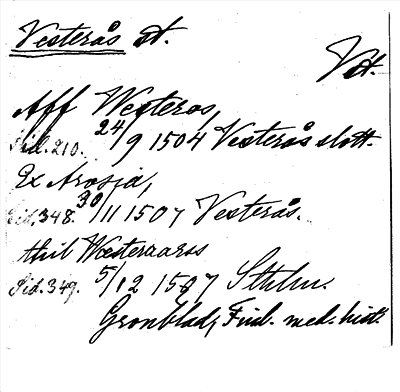 Vesterås st.
Vst.
Aff Westeros,
Sid. 210. 24/9 1504 Vesterås slott.
Ex Arosja,
Sid. 348. 30/11 1507 Vesterås.
thil Wæsteraarss
Sid. 349. 5/12 1507 Sthlm.
Grönblad, Finl. med. hist.